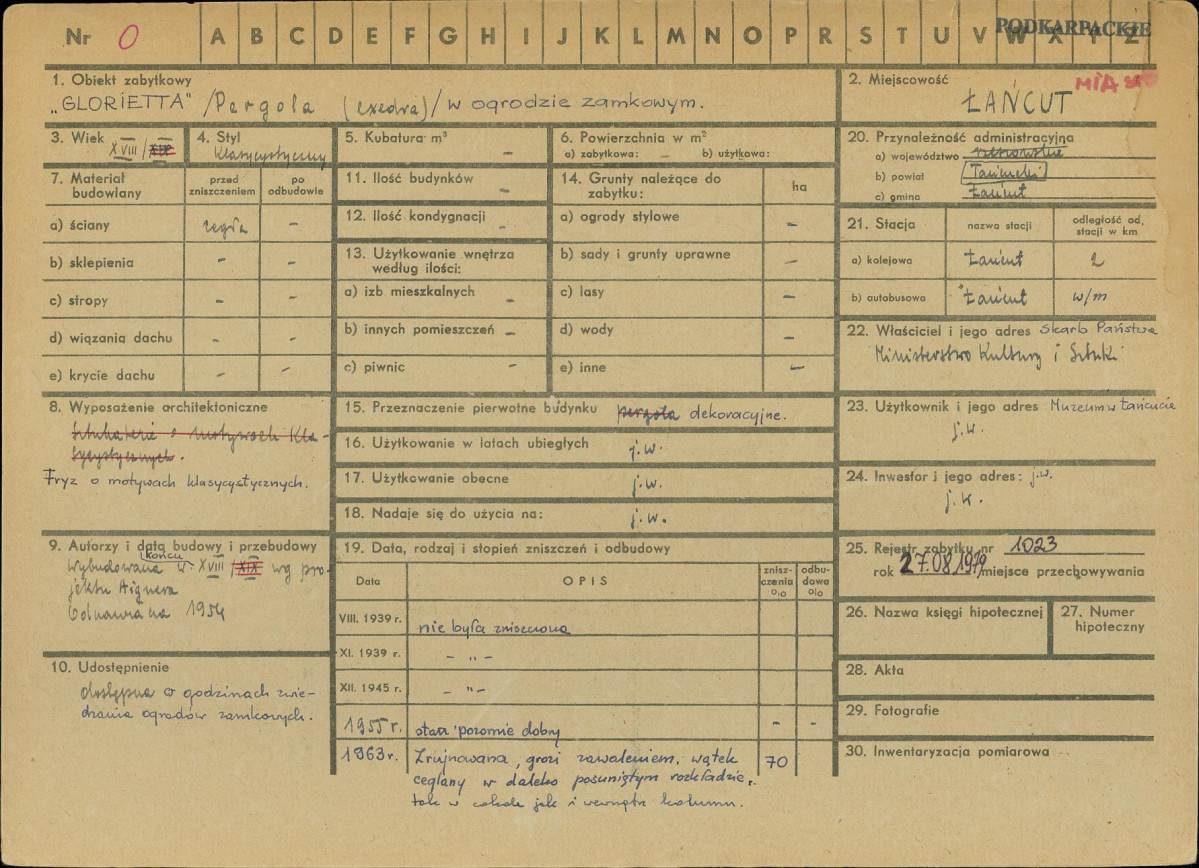 Nr 0 A B C D E F G H I J K L M N O P R S T U V W X Y Z
PODKARPACKIE
1. Obiekt zabytkowy
„GLORIETTA" /Pergola (exedra)/ w ogrodzie zamkowym.
2. Miejscowość
ŁAŃCUT
3. Wiek
XVIII/XIX
4. Styl
klasycystyczny
5. Kubatura m³
-
6. Powierzchnia w m²
a) zabytkowa: - b) użytkowa:
7. Materiał budowlany
przed zniszczeniem
po odbudowie
a) ściany cegła -
b) sklepienia - -
c) stropy - -
d) wiązania dachu - -
e) krycie dachu - -
11. Ilość budynków -
12. Ilość kondygnacji -
13. Użytkowanie wnętrza
według ilości:
a) izb mieszkalnych -
b) innych pomieszczeń -
c) piwnic -
14. Grunty należące do
zabytku:
ha
a) ogrody stylowe -
b) sady i grunty uprawne -
c) lasy -
d) wody -
e) inne -
20. Przynależność administracyjna
a) województwo rzeszowskie
b) powiat Łańcucki
c) gmina Łańcut
21. Stacja
nazwa stacji
odległość od.
stacji w km
a) kolejowa Łańcut 2
b) autobusowa Łańcut w/m
22. Właściciel i jego adres Skarb Państwa
Ministerstwo Kultury i Sztuki
8. Wyposażenie architektoniczne
Sztukateria o motywach kla-
sycystycznych.
Fryz o motywach klasycystycznych.
15. Przeznaczenie pierwotne budynku pergola dekoracyjne.
16. Użytkowanie w latach ubiegłych j.w.
17. Użytkowanie obecne j.w.
18. Nadaje się do użycia na: j.w.
23. Użytkownik i jego adres Muzeum w Łańcucie
j.w.
24. Inwestor i jego adres: j.w.
j.w.
9. Autorzy i data budowy i przebudowy
końcu
wybudowana w XVIII/XIX wg pro-
jektu Aignera
Odnawiana 1954
10. Udostępnienie
dostępna w godzinach zwie-
dzania ogrodów zamkowych.
19. Data, rodzaj i stopień zniszczeń i odbudowy
Data
OPIS
znisz-
czenia
%
odbu-
dowa
%
VIII. 1939 r. nie była zniszczona
XI. 1939 r. - „ -
XII. 1945 r. - „ -
1955 r. stan pozornie dobry - -
1963 r. Zrujnowana, grozi zawaleniem, wątek 70
ceglany w daleko posuniętym rozkładzie,
tak w cokole jak i wewnątrz kolumn.
25. Rejestr zabytku nr 1023
rok 27.08.1979 miejsce przechowywania
26. Nazwa księgi hipotecznej
27. Numer
hipoteczny
28. Akta
29. Fotografie
30. Inwentaryzacja pomiarowa